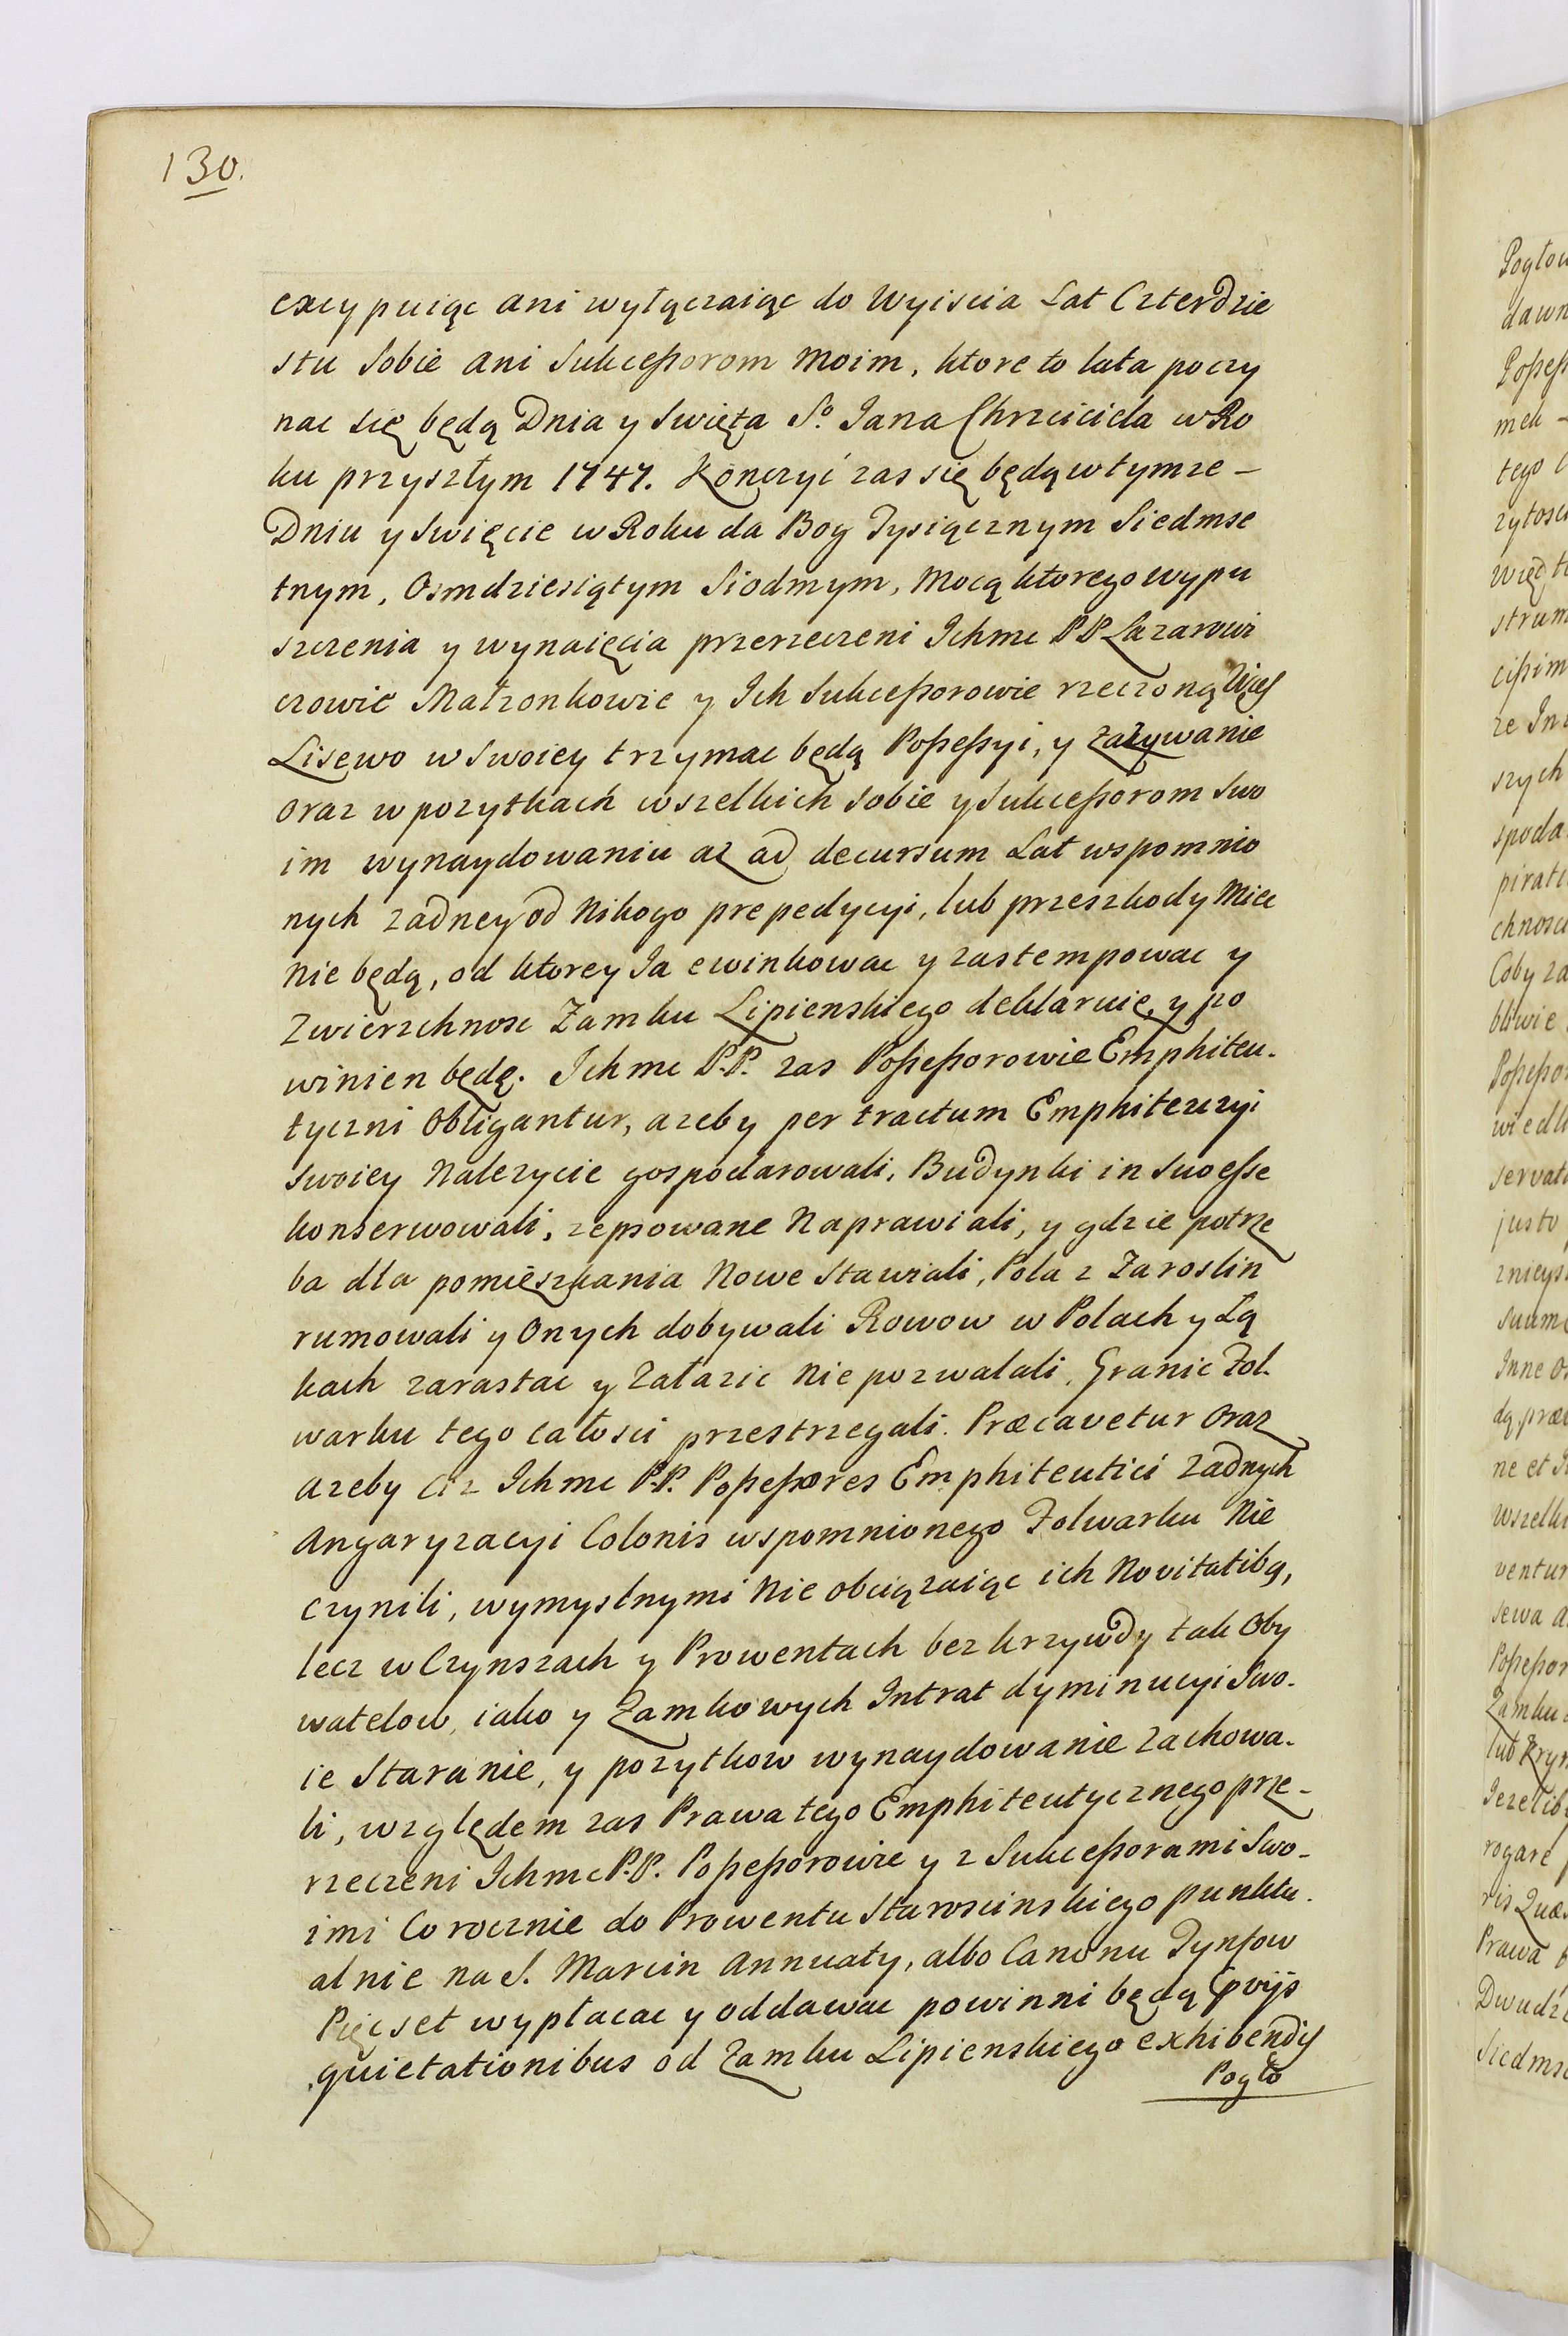 130.
excypuiąc ani wyłączaiąc do Wyiscia Lat Czterdzie
stu Sobie ani Sukceßorom Moim, ktore to lata poczy
nac się będą Dnia y Swięta S.º Jana Chrzciciela w Ro
ku przyszłym 1747. Konczyć zas się będą w tymze –
Dniu y Swięcie w Roku da Bog Tysiącznym Siedmse
tnym, Osmdziesiątym Siodmym, Mocą ktorego wypu
szczenia y wynaięcia przerzeczeni Ichmc PP Lazarowi
czowie Małzonkowie y Ich Sukceßorowie rzeczoną Wieś
Lisewo w Swoiey trzymac będą Poßeßyi, y zazywanie
oraz w pozytkach wszelkich Sobie y Sukceßorom Swo
im wynaydowaniu az ad decursum Lat wspomnio
nych zadney od Nikogo prepedycyi, lub przeszkody Miec
Nie będą, od ktorey Ia ewinkowac y zastempowac y
Zwierzchnosc Zamku Lipienskiego deklaruię, y po
winien będę. Ichmc P.P. zas Poßeßorowie Emphiteu-
tyczni Obligantur, azeby per tractum Emphiteuzyi
Swoiey Nalezycie gospodarowali, Budynki in Suo eße
konserwowali, zepsowane Naprawiali, y gdzie potrze
ba dla pomieszkania Nowe Stawiali, Pola z Zaroslin
rumowali y Onych dobywali Rowow w Polach y Łą
kach zarastac y Załazic Nie pozwalali, Granic Fol-
warku tego całosci przestrzegali. Præcavetur Oraz
azeby Ciz Ichmc P.P. Poßeßores Emphiteutici Zadnych
Angaryzacyi Colonis wspomnionego Folwarku Nie
czynili, wymyslnymi Nie obciązaiąc ich Novitatibq,
lecz w Czynszach y Prowentach bez krzywdy tak Oby
watelow, iako y Zamkowych Intrat dyminucyi Swo-
ie Staranie, y pozytkow wynaydowanie Zachowa-
li, względem zas Prawa tego Emphiteutycznego prze-
rzeczeni Ichmc P.P. Poßeßorowie y z Sukceßorami Swo-
imi Corocznie do Prowentu Staroscinskiego punktu-
alnie na S. Marcin Annuaty, albo Canonu Tynfow
Pięcset wypłacac y oddawac powinni będą
quietationibus od Zamku Lipienskiego exhibendis
Pogło